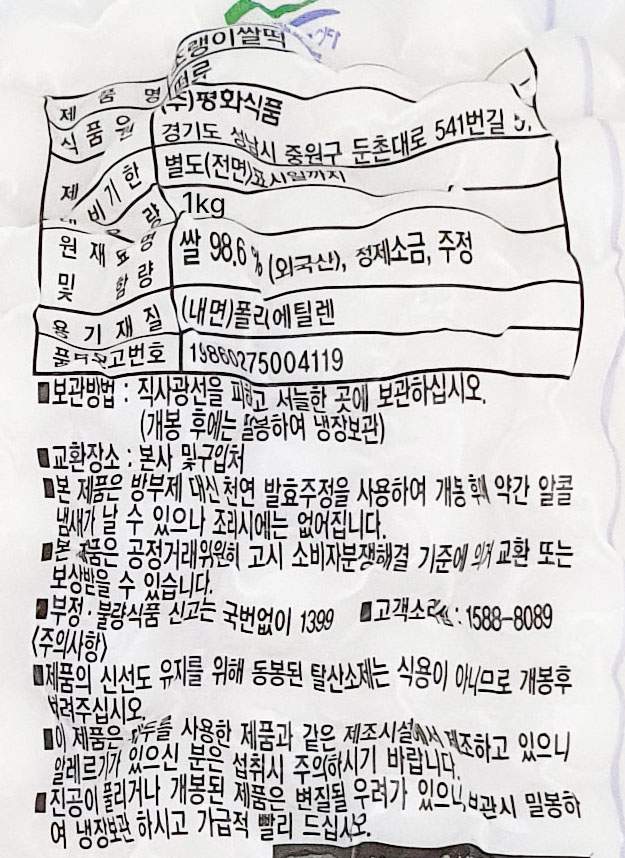 랭이쌀떡
제 품 명 떡류
식품원 (주)평화식품
경기도 성남시 중원구 둔촌대로 541번길
제 비기한 별도(전면)표시일까지
량 1kg
원 재료명 및 함량 쌀 98.6 % (외국산), 정제소금, 주정
용기재질 (내면)폴리에틸렌
고번호 19860275004119
■보관방법 : 직사광선을 피하고 서늘한 곳에 보관하십시오.
(개봉 후에는 밀봉하여 냉장보관)
■교환장소 : 본사 및구입처
■본 제품은 방부제 대신 천연 발효주정을 사용하여 개봉 약간 알콜
냄새가 날 수 있으나 조리시에는 없어집니다.
■본 제품은 공정거래위원회 고시 소비자분쟁해결 기준에 의거 교환 또는
보상받을 수 있습니다.
■부정·불량식품 신고는 국번없이 1399 ■고객소리 : 1588-8089
〈주의사항〉
■제품의 신선도 유지를 위해 동봉된 탈산소제는 식용이 아니므로 개봉후
버려주십시오.
■이 제품은 사용한 제품과 같은 제조시설에서 제조하고 있으니
알레르기가 있으신 분은 섭취시 주의하시기 바랍니다.
■진공이 풀리거나 개봉된 제품은 변질될 우려가 있으니, 보관시 밀봉하
여 냉장보관 하시고 가급적 빨리 드십시오.